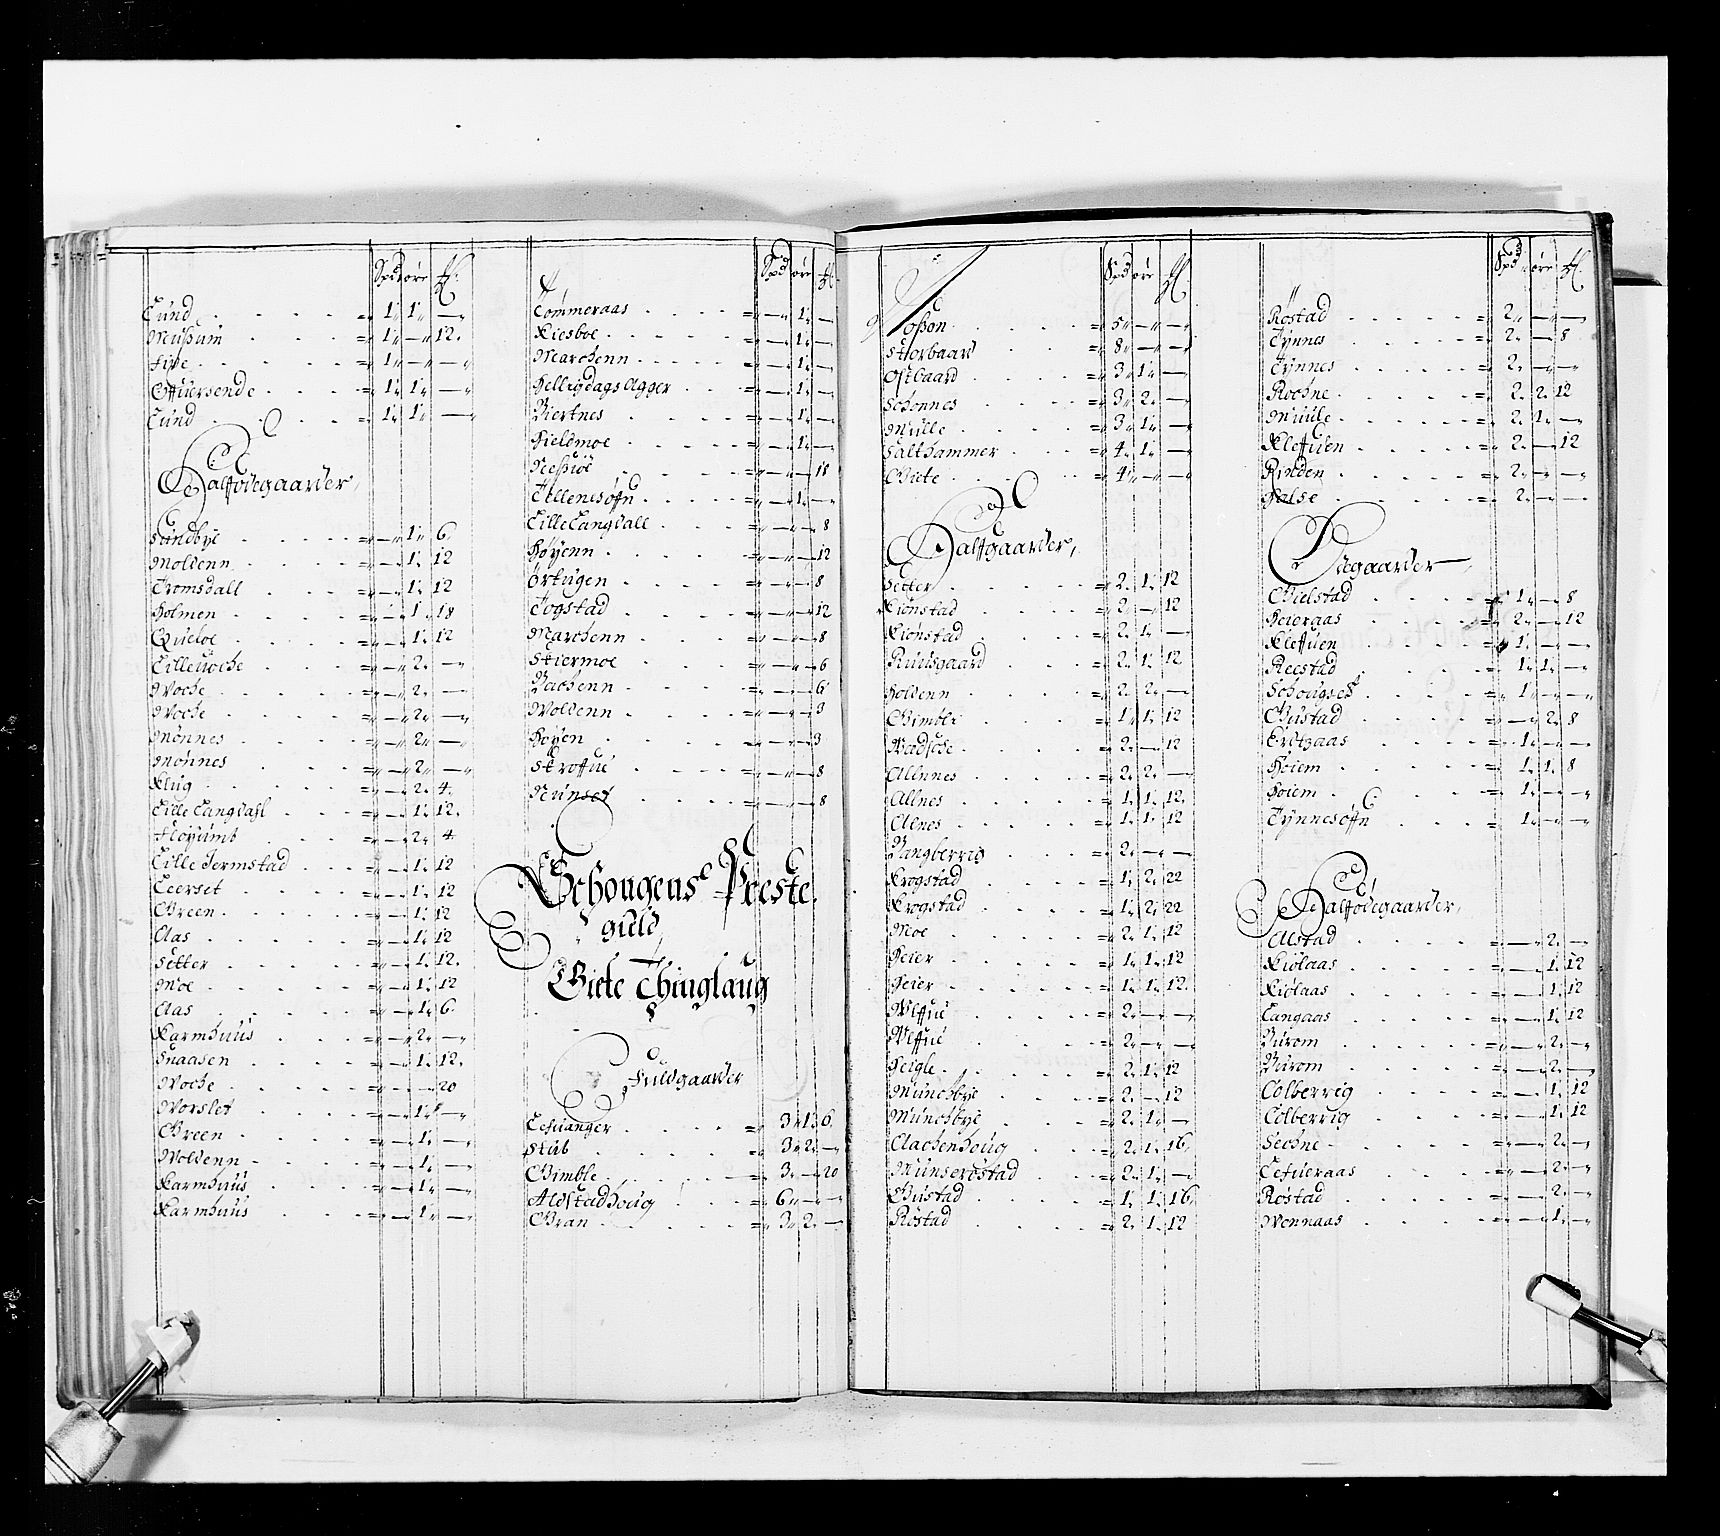 Spd øre
Lund = 1 „ 1 „ —
Mußum = 1 „ — „ 12.
Five = 1 „ — „ —
Offuersende = 1 „ 1 „ —
Lund = 1 „ 1 „ —
Halfödegaarder,
Sundbye = „ — „ 1 „ 6.
Moldenn = „ — „ 1. 12
Tromsdall = „ — „ 1. 12
Holmen = „ — „ 1 „ 18
Quieloe = „ — „ 1. 12
Lilleuoche = „ — „ 2. —
Woche = „ — „ 2. —
Woche = „ — „ 2. —
Mönnes = „ — „ 2 „ —
Mönnes = „ — „ 2 „ —
Klug = „ — „ 2. 4.
Lille Langdahl = „ — „ 1. 12.
Floyumb = „ — „ 2. 4
Lille Jermstad = „ — „ 1. 12
Leerset = „ — „ 1. 12
Green = „ — „ 1. 12
Aas = „ — „ 1. 12
Setter = „ — „ 1. 12.
Moe = „ — „ 1. 12
Aas = „ — „ 1. 6
Karmhuus = „ — „ 2. —
Snaasen = „ — „ 1. 12.
Woche = „ — „ — 20
Worslet = „ — „ 1 „ —
Green = „ — „ 1. —
Woldenn = „ — „ 1. —
Karmhuus = „ — „ 1. —
Karmhuus = „ — „ 1. —
Spd øre
Tömmeraas = „ — „ 1. —
Kiesboe = „ — „ 1. —
Marchenn = „ — „ 1. —
Hellizdags Agger = „ — „ 1. —
Biertnes = „ — „ 1. —
Fieldmoe = „ — „ 1. —
Neßiöe = „ — „ — 18
Tillenesöffn = „ — „ 1. —
Lille Langdall = „ — „ — „ 8
Høyenn = „ — „ — 12
Örtugen = „ — „ — 8
Jogstad = „ — „ — 12
Marchenn = „ — „ — 8
Stiermoe = „ — „ — 6
Bachenn = „ — „ — 6
Woldenn = „ — „ — 3
Høyen = „ — „ — 3
Stroffue = „ — „ — 8
Runset = „ — „ — 8
Schougens Preste
gield
Giete Thinglaug
Fuldgaarder
Lefuanger = 3 „ 1. 6
Stub = 3 „ 2. —
Gimble = 3 „ — 20
Aldstadhoug = 6 „ — „ —
Gran = 3 „ 2. —
Spd øre
Moßon = 5 „ — „ —
Storbaard = 8 „ — „ —
Ostbaard = 3 „ 1. —
Schonnes = 3 „ 2. —
Mulle = 3 „ 1. —
Salthammer = 4. 1. —
Giete = 4 „ — „ —
Halfgaarder,
Setter = 2. 1. 12
Lionstad = 2. — 12
Lionstad = 2. 1. —
Ruusgaard = 2. 1. 12
Holdenn = 2. 2. —
Gimble = 1. 1. 12
Wadsöe = 2. — 12
Allnnes = 2. 2. —
Allnes = 1. 1. 12.
Allnes = 1. 1. 12
Bangberrig = 2. — —
Krogstad = 1. 2. 22
Krogstad = 1. 2. 22
Moe = 2. 1. 12
Heier = 1. 1. 12
Heier = 1. 1. 12.
Wlffue = 2. — —
Wlffue = 2. — —
Heigle = 2. 1. 12
Munchbye = 2. — 12
Munchbye = 2. 1. —
Aachenhoug = 2. 1. 16.
Munseröstad = 2. 1. —
Gustad = 1. 1. 16.
Røstad = 2. 1. 12
Spd øre
Røstad = 2 „ — „ —
Tynnes = 2. — „ 8
Tynnes = 2. — „ —
Rochne = 2. 2. 12
Muule = 2. 1. —
Kleffuen = 2. — 12
Rinden = 2. — „ —
Halse = 2. — „ —
Ødegaarder
Gielstad = 1. — „ 8
Heieraas = 2. — „ 12
Kleffuen = 1. — —
Reestad = 1. 1. —
Schougset = 1 „ — „ —
Gustad = — „ 2. 8
Erdtgaas = 1. — „ —
Høiem = 1. 1. 8
Høiem = 1. — „ —
Tynnesöffn = 1. — „ —
Halfödegaarder,
Alstad = „ — „ 2. —
Kiölaas = „ — „ 1. 12
Kiölaas = „ — „ 1. 12
Langaas = „ — „ 1. 12
Burom = „ — „ 2. —
Burom = „ — „ 2. —
Colberrig = „ — „ 1. 12
Colberrig = „ — „ 1. 12
Sechne = „ — „ 2. —
Lefueraas = „ — „ 2. —
Røstad = „ — „ 2. —
Wennaas = „ — „ 1. —